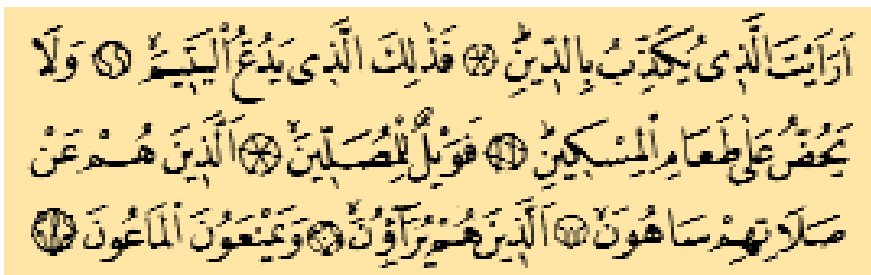 اَرَاَيْتَ الَّذِى يُكَذِّبُ بِالدِّينِۜ ۝ فَذٰلِكَ الَّذِى يَدُعُّ الْيَتِيمَۙ ۝ وَلَا
يَحُضُّ عَلٰى طَعَامِ الْمِسْكِينِۜ ۝ فَوَيْلٌ لِلْمُصَلِّينَۙ ۝ اَلَّذِينَ هُمْ عَنْ
صَلَاتِهِمْ سَاهُونَۙ ۝ اَلَّذِينَ هُمْ يُرَآؤُنَۙ ۝ وَيَمْنَعُونَ الْمَاعُونَ ۝